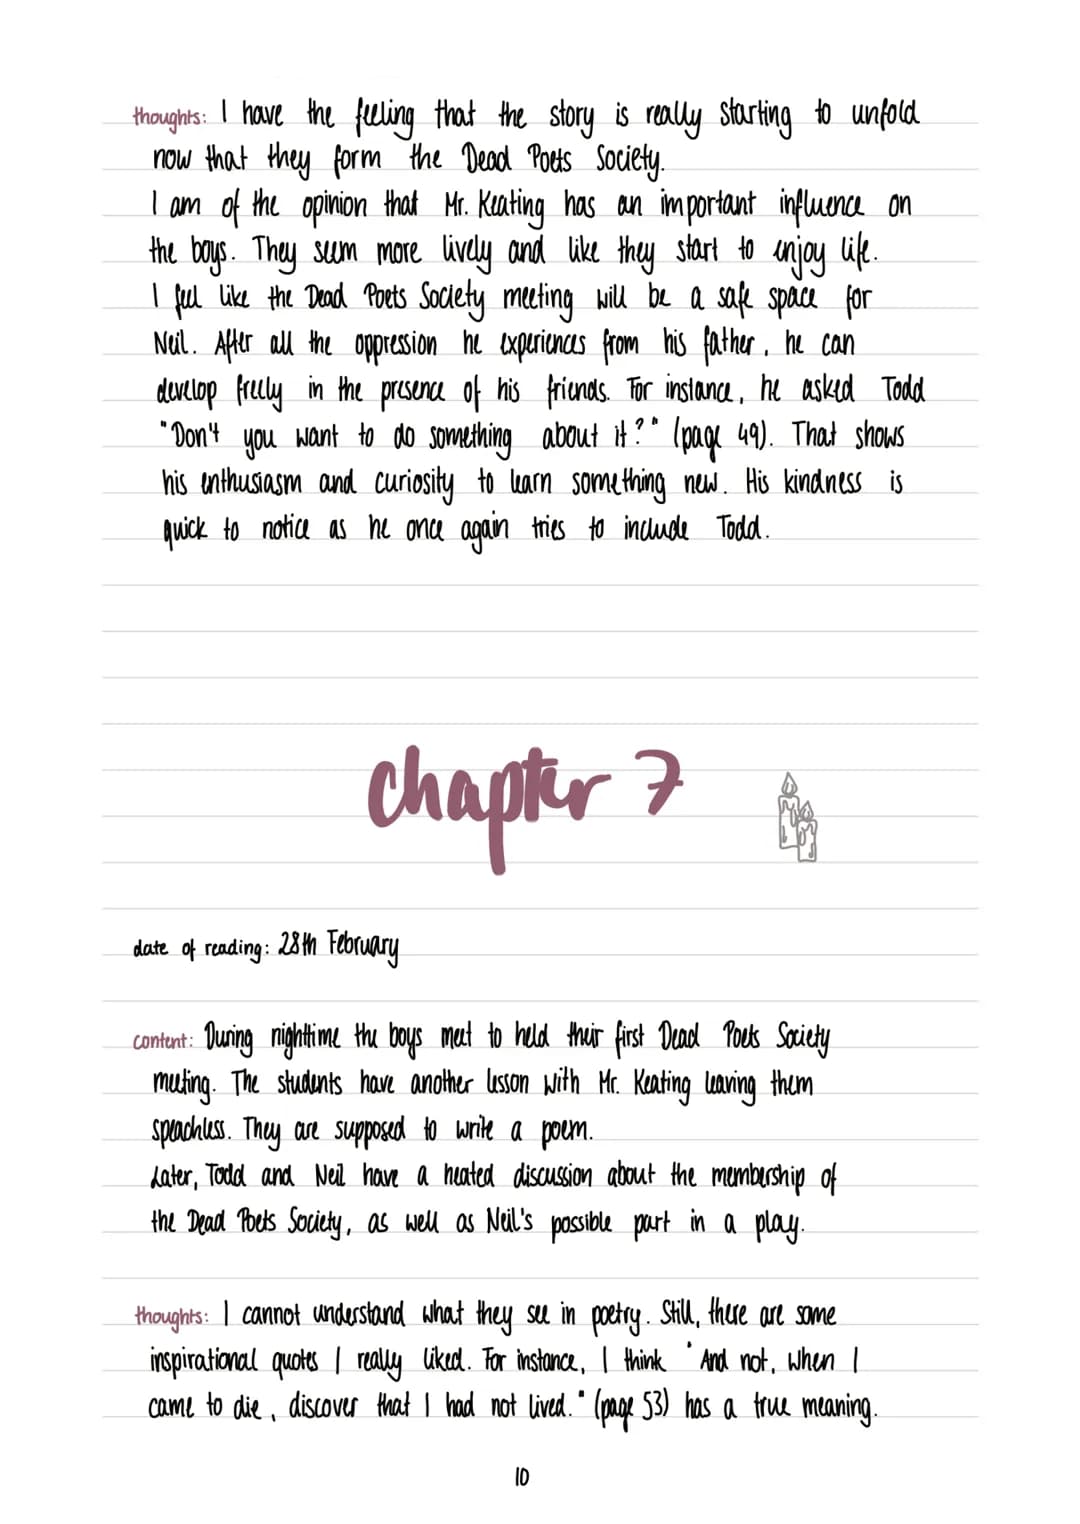 thoughts: I have the feeling that the story is really starting to unfold
now that they form the Dead Poets Society.
I am of the opinion that Mr. Keating has an important influence on
the boys. They seem more lively and like they start to enjoy life.
I feel like the Dead Poets Society meeting will be a safe space for
Neil. After all the oppression he experiences from his father, he can
develop freely in the presence of his friends. For instance, he asked Todd
"Don't you want to do something about it?" (page 49). That shows
his enthusiasm and curiosity to learn something new. His kindness is
quick to notice as he once again tries to include Todd.
chapter 7
date of reading: 28th February
content: During nighttime the boys meet to held their first Dead Poets Society
meeting. The students have another lesson with Mr. Keating leaving them
speachless. They are supposed to write a poem.
Later, Todd and Neil have a heated discussion about the membership of
the Dead Poets Society, as well as Neil's possible part in a play.
thoughts: I cannot understand what they see in poetry. Still, there are some
inspirational quotes I really liked. For instance, I think "And not, when I
came to die, discover that I had not lived." (page 53) has a true meaning.
10